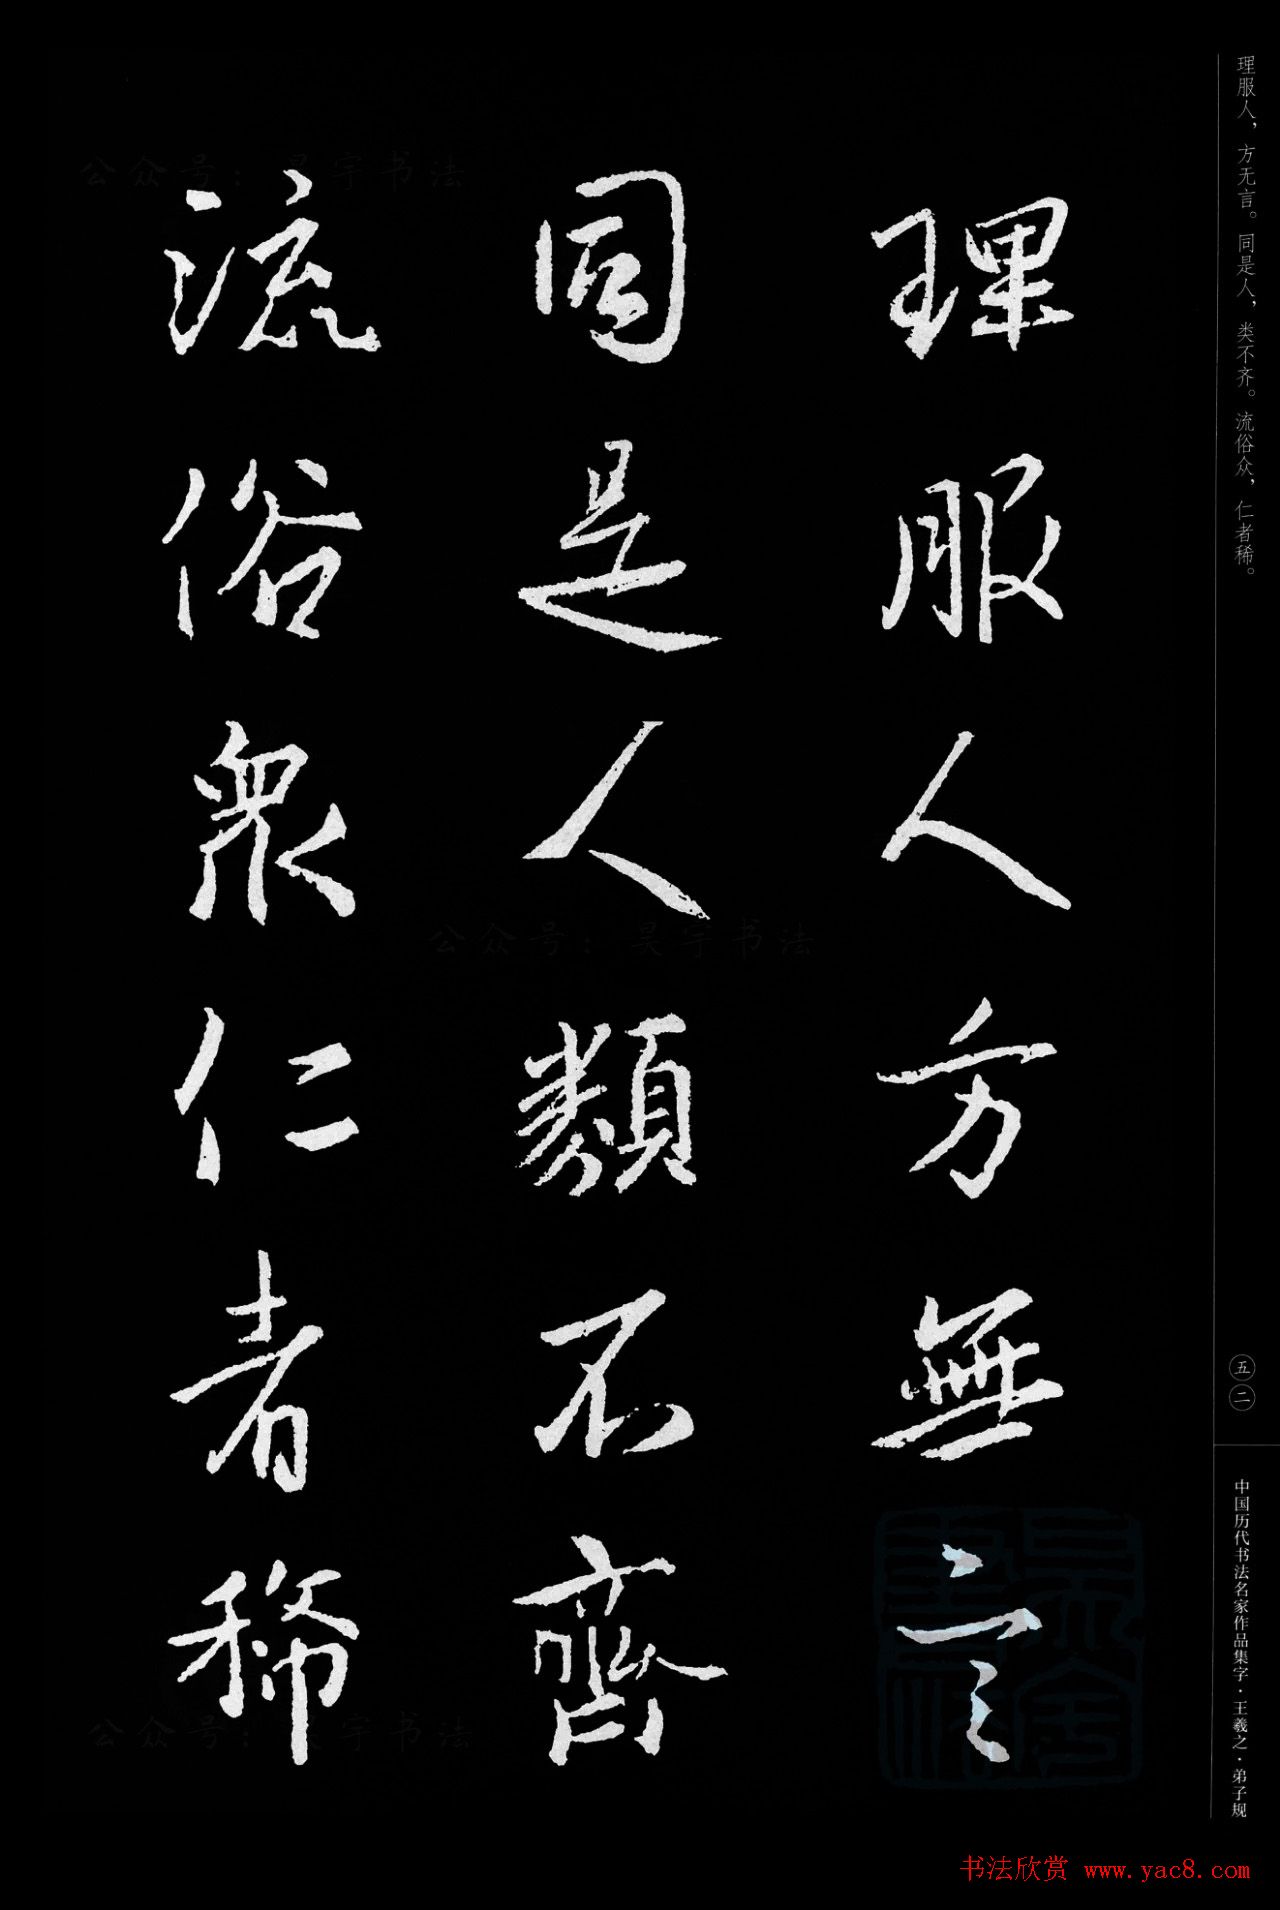 理服人方無言
同是人類不齊
流俗衆仁者稀
理服人，方无言。同是人，类不齐。流俗众，仁者稀。
五二
中国历代书法名家作品集字·王羲之·弟子规
公众号：昊宇书法
公众号：昊宇书法
公众号：昊宇书法
书法欣赏 www.yac8.com